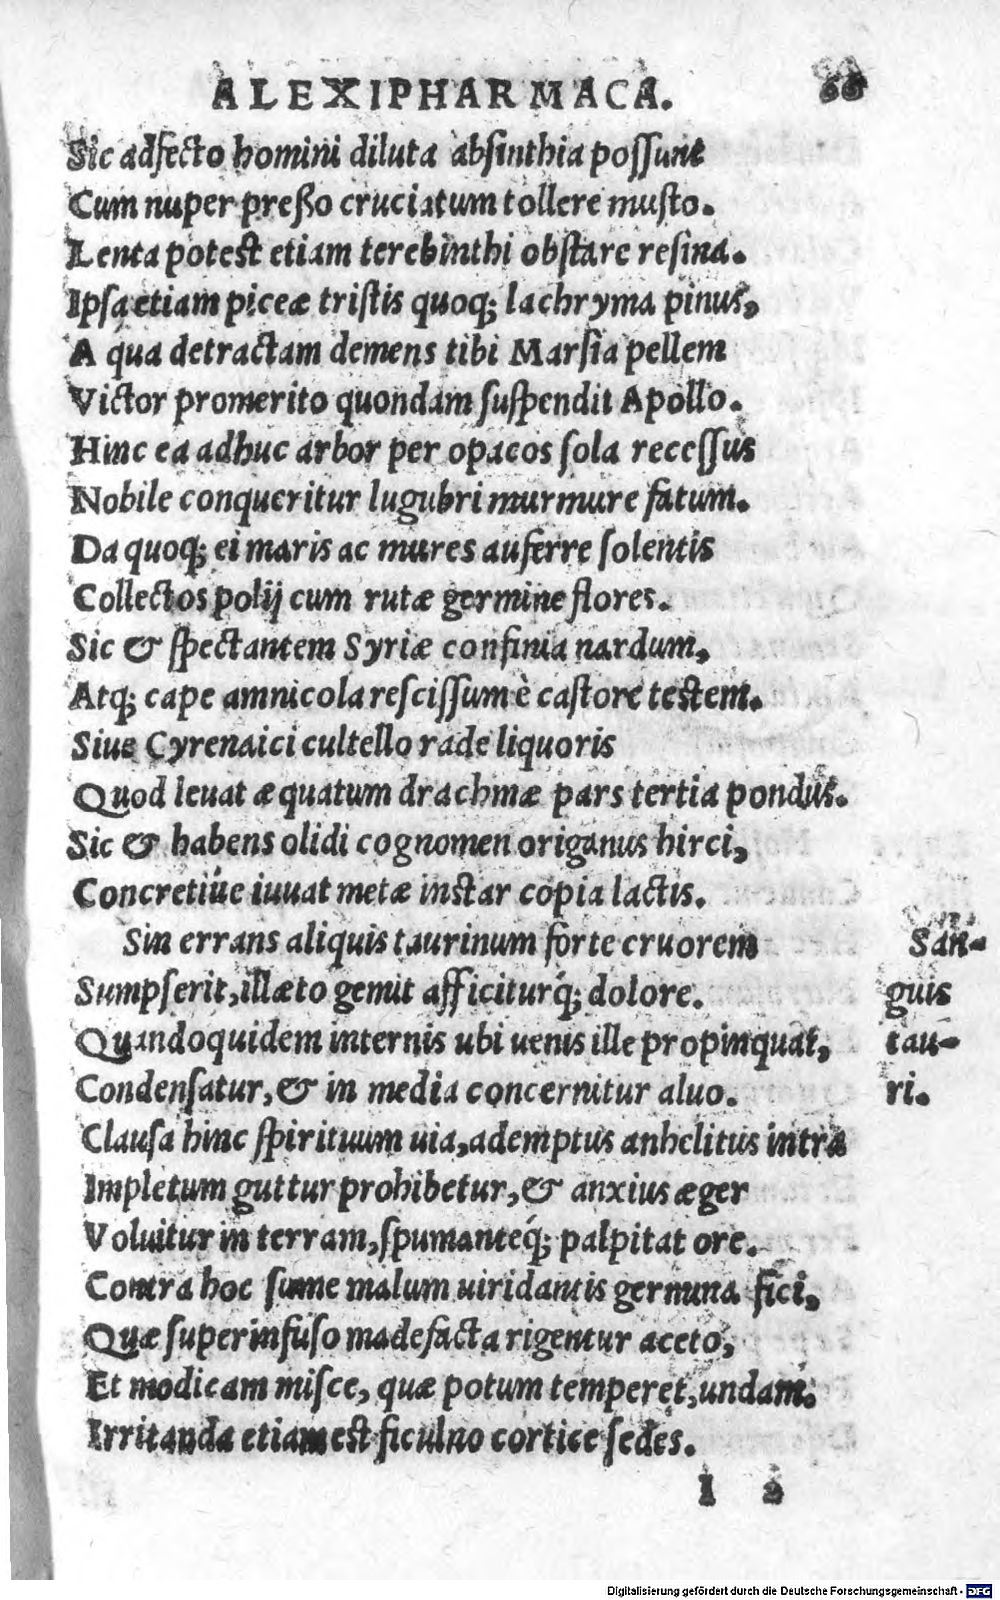 ALEXIPHARMACA. 66
Sic adfecto homini diluta absinthia possunt
Cum nuper preßo cruciatum tollere musto.
Lenta potest etiam terebinthi obstare resina.
Ipsa etiam piceæ tristis quoq; lachryma pinus,
A qua detractam demens tibi Marsia pellem
Victor promerito quondam suspendit Apollo.
Hinc ea adhuc arbor per opacos sola recessus
Nobile conqueritur lugubri murmure fatum.
Da quoq; ei maris ac mures auferre solentis
Collectos polij cum rutæ germine flores.
Sic & spectantem Syriæ confinia nardum,
Atq; cape amnicola rescissum è castore testem.
Siue Cyrenaici cultello rade liquoris
Quod leuat æquatum drachmæ pars tertia pondus.
Sic & habens olidi cognomen origanus hirci,
Concretiúe iuuat metæ instar copia lactis.
Sin errans aliquis taurinum forte cruorem
Sumpserit, illæto gemit afficiturq́; dolore.
Quandoquidem internis ubi uenis ille propinquat,
Condensatur, & in media concernitur aluo.
Clausa hinc spirituum uia, ademptus anhelitus intra
Impletum guttur prohibetur, & anxius æger
Voluitur in terram, spumanteq́; palpitat ore.
Contra hoc sume malum uiridantis germina fici,
Quæ superinfuso madefacta rigentur aceto,
Et modicam misce, quæ potum temperet, undam.
Irritanda etiam est ficulno cortice sedes.
San-
guis
tau-
ri.
I 2
Digitalisierung gefördert durch die Deutsche Forschungsgemeinschaft - DFG